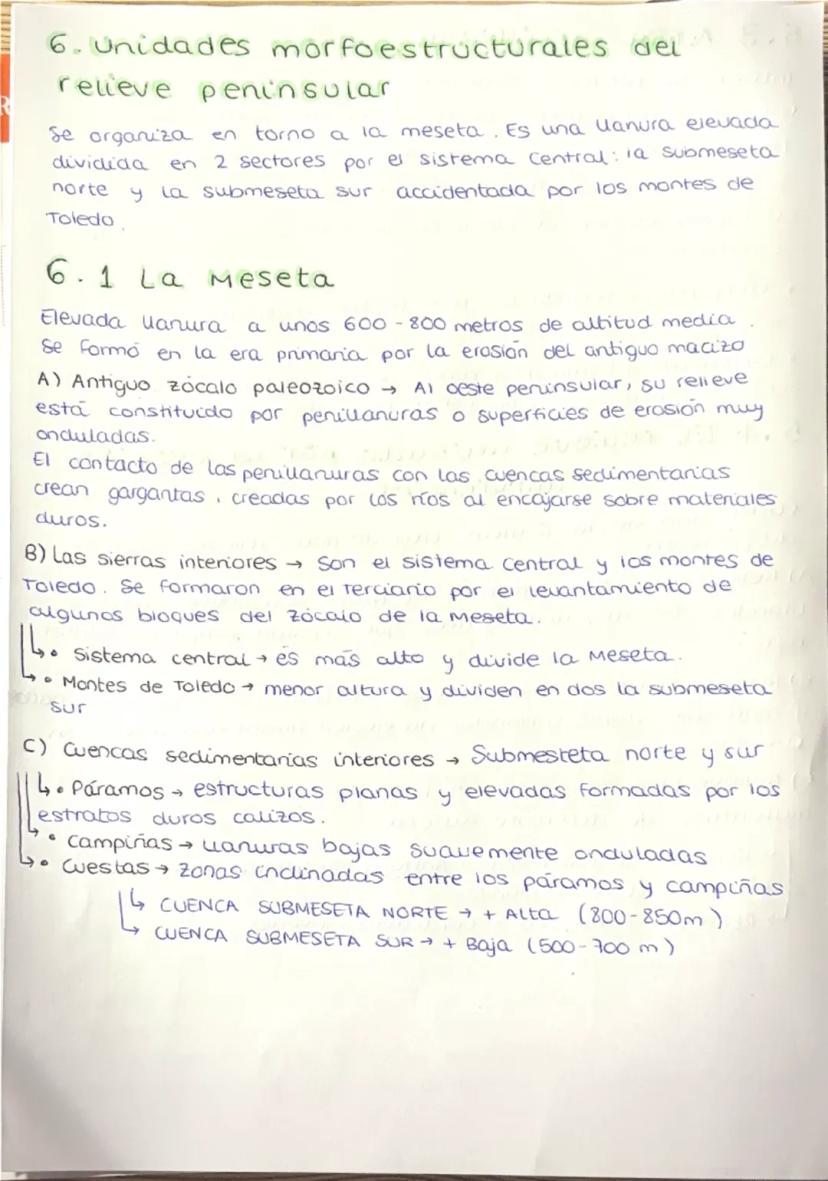 6. Unidades morfoestructurales del
relieve peninsular
Se organiza en torno a la meseta. Es una llanura elevada
dividida en 2 sectores por el sistema Central: la submeseta
norte y la submeseta sur accidentada por los montes de
Toledo.
6.1 La Meseta
Elevada llanura a unos 600-800 metros de altitud media.
Se formó en la era primaria por la erosión del antiguo macizo
A) Antiguo zócalo paleozoico → Al oeste peninsular, su relieve
está constituido por penillanuras o superficies de erosión muy
onduladas.
El contacto de las penillanuras con las cuencas sedimentarias
crean gargantas, creadas por los ríos al encajarse sobre materiales
duros.
B) Las sierras interiores → Son el sistema Central y los montes de
Toledo. Se formaron en el Terciario por el levantamiento de
algunos bloques del zócalo de la Meseta.
↳• Sistema central → es más alto y divide la Meseta.
↳• Montes de Toledo → menor altura y dividen en dos la submeseta
sur
C) Cuencas sedimentarias interiores → Submesteta norte y sur
↳• Páramos → estructuras planas y elevadas formadas por los
estratos duros calizos.
↳• Campiñas → llanuras bajas suavemente onduladas
↳• Cuestas → zonas inclinadas entre los páramos y campiñas
↳ CUENCA SUBMESETA NORTE → + Alta (800-850m)
↳ CUENCA SUBMESETA SUR → + Baja (500-700 m)
R